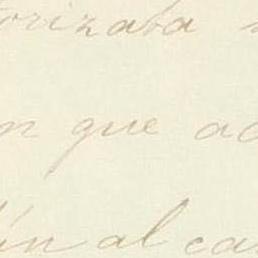 torizaba
n que ac
ón al ca